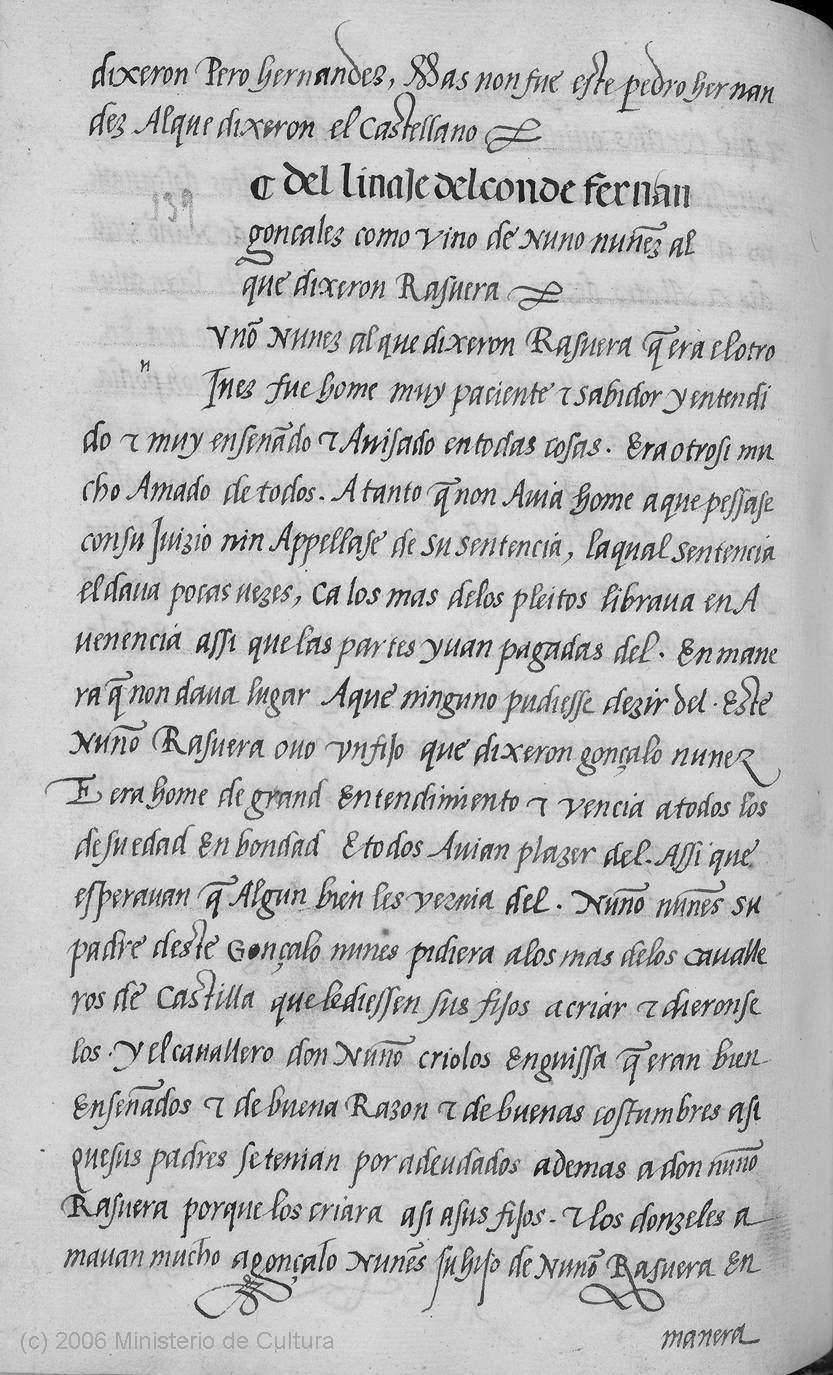 dixeron Pero hernandez, Mas non fue este pedro hernan
dez Al que dixeron el Castellano
C del linaje del conde fernan
139
gonçalez como vino de Nuno nuñez al
que dixeron Rasuera
vnõ Nunez al que dixeron Rasuera q̃ era el otro
n
Juez fue home muy paciente τ sabidor y entendi
do τ muy enseñado τ Auisado en todas cosas. Era otrosi mu
cho Amado de todos. A tanto q̃ non Auia home a que pessase
con su Juizio nin Appellase de su sentencia, la qual sentencia
el daua pocas vezes, Ca los mas delos pleitos libraua en A
uenencia assi que las partes yuan pagadas del. En mane
ra q̃ non daua lugar Aque ninguno pudiesse dezir del. Este
Nuño Rasuera ouo vn fijo que dixeron gonçalo nunez
E era home de grand Entendimiento τ vencia a todos los
de su edad En bondad E todos Auian plazer del. Assi que
esperauan q̃ Algun bien les vernia del. Nuño nuñes su
padre deste Gonçalo nunes pidiera alos mas delos caualle
ros de Castilla que le diessen sus fijos a criar τ dieronse
los. Y el cauallero don Nuño criolos Enguissa q̃ eran bien
Enseñados τ de buena Razon τ de buenas costumbres asi
que sus padres se tenian por adeudados ademas a don nuño
Rasuera porque los criara asi a sus fijos. τ los donzeles a
mauan mucho a gonçalo Nuñes su hijo de Nuño Rasuera En
manera
(c) 2006 Ministerio de Cultura